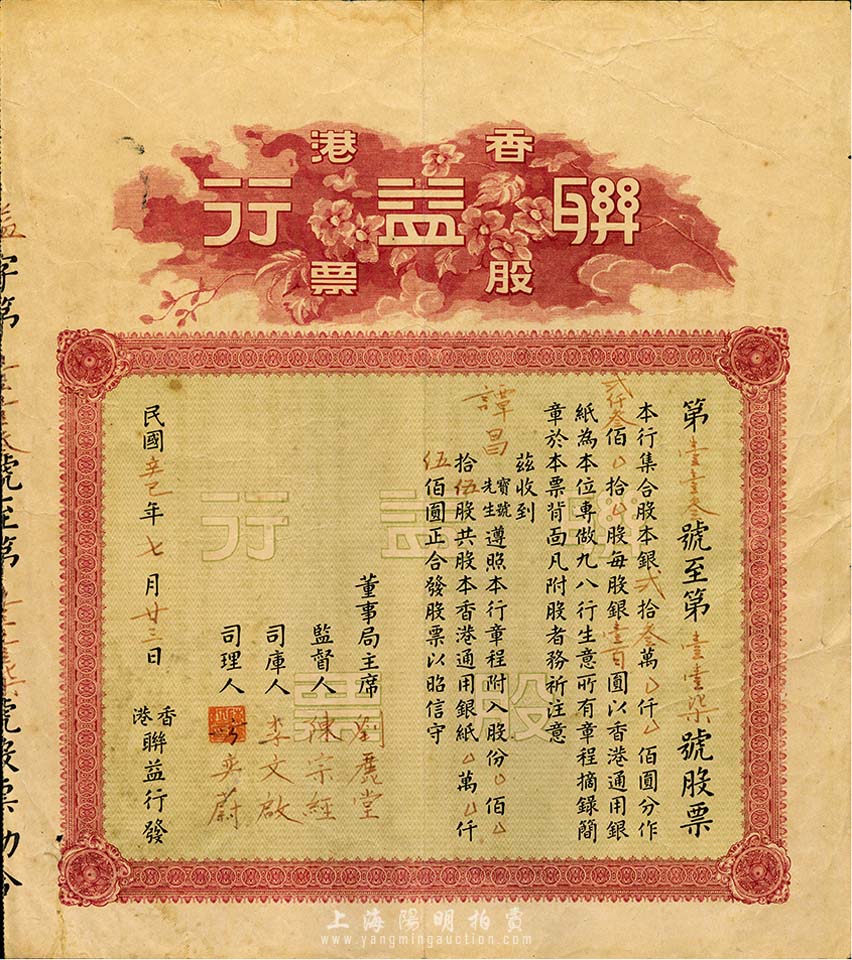 香港
聯益行
股票
第壹壹叁號至第壹壹柒號股票
本行集合股本銀弍拾叁萬〇仟〇佰圓分作
弍仟叁佰〇拾〇股每股銀壹百圓以香港通用銀
紙為本位專做九八行生意所有章程摘錄簡
章於本票背面凡附股者務祈注意
茲收到
譚昌寶號先生遵照本行章程附入股份〇佰〇
拾伍股共股本香港通用銀紙〇萬〇仟
伍佰圓正合發股票以昭信守
董事局主席 劉麗堂
監督人 陳宗經
司庫人 李文啟
司理人 英蔚
民國辛巳年七月廿三日
香港聯益行發
聯益行
股票
益字第 號至第 號股票
上海陽明拍賣
www.yangmingauction.com